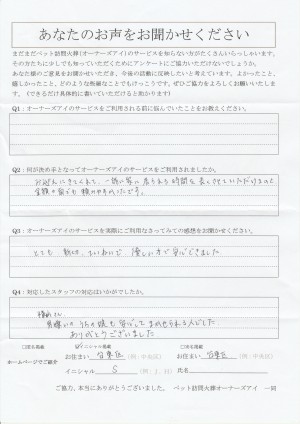 あなたのお声をお聞かせください
まだまだペット訪問火葬(オーナーズアイ)のサービスを知らない方がたくさんいらっしゃいます。
その方たちに少しでも知っていただくためにアンケートにご協力いただけないでしょうか。
あなた様のご意見をお聞かせいただき、今後の活動に反映したいと考えています。よかったこと、
嬉しかったこと、どのような些細なことでもけっこうです。ぜひご協力をよろしくお願いいたしま
す。(できるだけ具体的に書いていただけると助かります)
Q1：オーナーズアイのサービスをご利用される前に悩んでいたことをお教えください。
Q2：何が決め手となってオーナーズアイのサービスをご利用されましたか。
お迎えにきてくれて、一緒に家に居られる時間を長くさせていただけるのと
金額の面でも頼みやすかったです。
Q3：オーナーズアイのサービスを実際にご利用なさってみての感想をお聞かせください。
とても親切、ていねいで、優しい方で安心できました。
Q4：対応したスタッフの対応はいかがでしたか。
さん
うちの娘も安心してまかせられる人でした。
ありがとうございました
ホームページでご紹介
□イニシャル掲載
お住まい 青葉区 (例：中央区)
イニシャル S (例：J．H)
お住まい 青葉区 (例：中央区)
氏名
ご協力、本当にありがとうございました。 ペット訪問火葬オーナーズアイ 一同